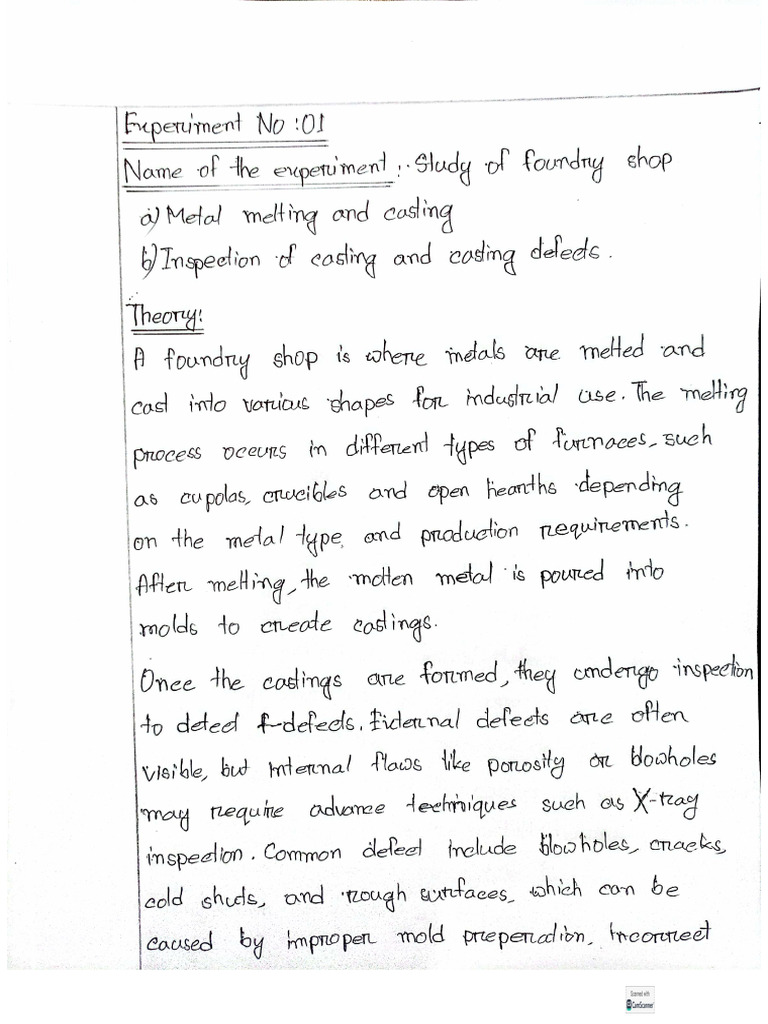 Experiment No :01
Name of the experiment :. Study of foundry shop
a) Metal melting and casting
b) Inspection of casting and casting defects.
Theory:
A foundry shop is where metals are melted and
cast into various shapes for industrial use. The melting
process occurs in different types of furnaces, such
as cupolas, crucibles and open hearths depending
on the metal type, and production requirements.
After melting, the molten metal is poured into
molds to create castings.
Once the castings are formed, they undergo inspection
to detect defects. External defects are often
visible, but internal flaws like porosity or blowholes
may require advance techniques such as X-ray
inspection. Common defect include blowholes, cracks,
cold shuts, and rough surfaces, which can be
caused by improper mold preperation, incorrect
Scanned with
CamScanner